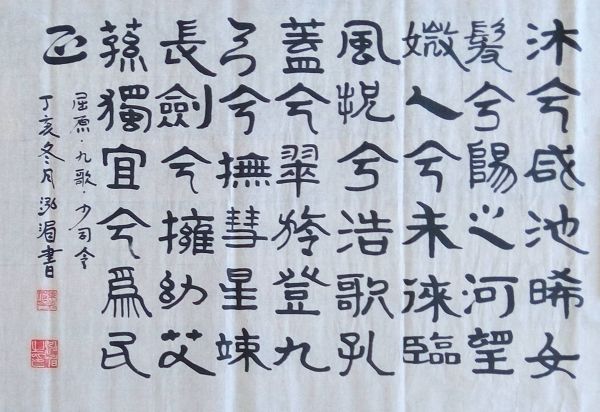 沐兮咸池晞女
髮兮陽之河望
媺人兮未徠臨
風怳兮浩歌孔
蓋兮翠旍登九
兮撫彗星竦
長劍兮擁幼艾
蓀獨宜兮爲民
正
屈原·九歌 少司令
丁亥冬月書